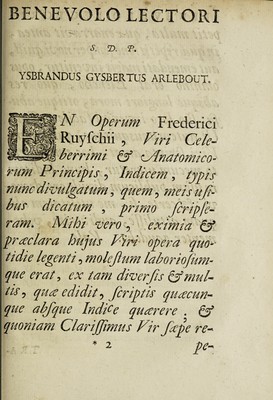 BENEVOLO LECTORI
S. D. P.
YSBRANDUS GYSBERTUS ARLEBOUT.
EN Operum Frederici
Ruyſchii, Viri Cele-
berrimi & Anatomico-
rum Principis, Indicem, typis
nunc divulgatum, quem, meis uſi-
bus dicatum, primo ſcripſe-
ram. Mihi vero, eximia &
præclara hujus Viri opera quo-
tidie legenti, moleſtum laborioſum-
que erat, ex tam diverſis & mul-
tis, quæ edidit, ſcriptis quæcun-
que abſque Indice quærere; &
quoniam Clariſſimus Vir ſæpe re-
* 2 pe-